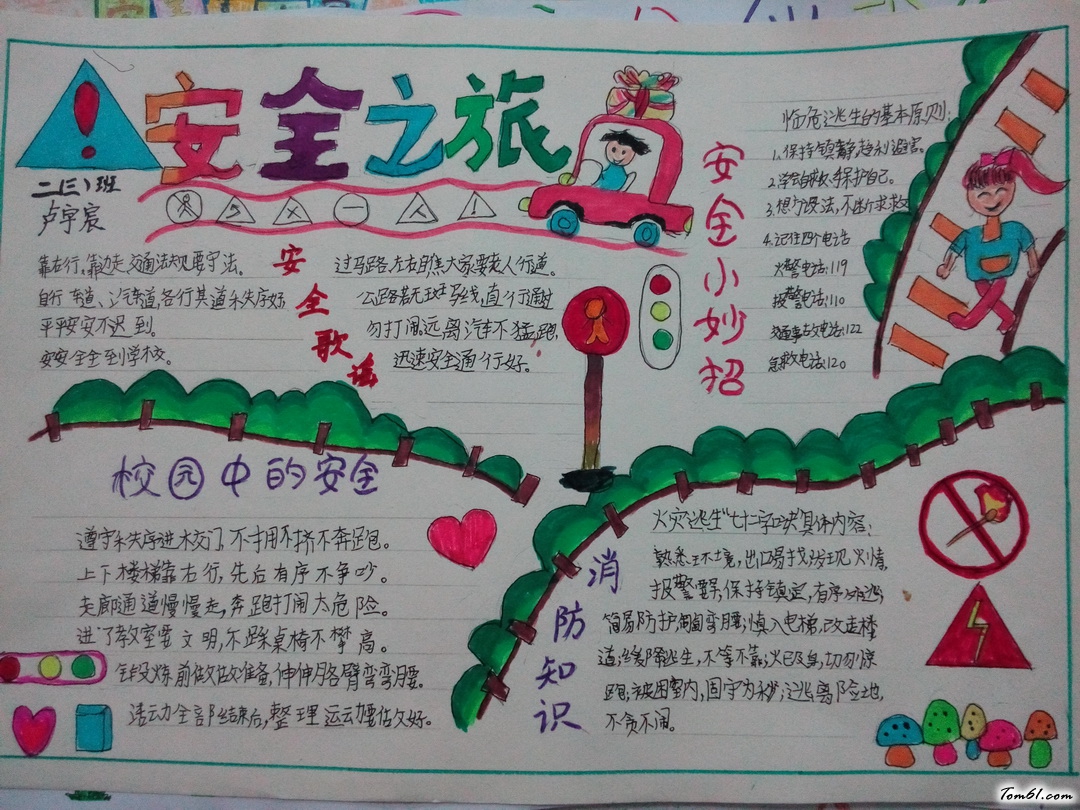 安全之旅
二(三)班
卢宇宸
安全歌谣
靠右行,靠边走,交通法规要守法。
自行车道、汽车道,各行其道
平平安安不迟到。
安安全全到学校。
过马路,左右
公路若无斑马线,直行通过
勿打闹远离汽车不猛跑,
迅速安全通行好。
安全小妙招
临危逃生的基本原则:
1.保持镇静,趋利避害。
2.学会自救,保护自己。
3.想方设法,不断求救
4.记住四个电话
火警电话:119
报警电话:110
交通事故电话:122
急救电话:120
校园中的安全
遵守秩序进校门,不拥不挤不奔跑。
上下楼梯靠右行,先后有序不争吵。
走廊通道慢慢走,奔跑打闹太危险。
进了教室要文明,不踩桌椅不攀高。
锻炼前做做准备,伸伸胳臂弯弯腰。
活动全部结束后,整理运动要做好。
消防知识
火灾逃生"七十二字口诀"具体内容:
熟悉环境,出口易找;发现火情,
报警要早;保持镇定,有序
简易防护,匍匐弯腰;慎入电梯,改走楼
道;缓降逃生,不等不靠;火已及身,切勿惊
跑;被困室内,固守为妙;逃离险地,
不贪不闹。
Tom61.com